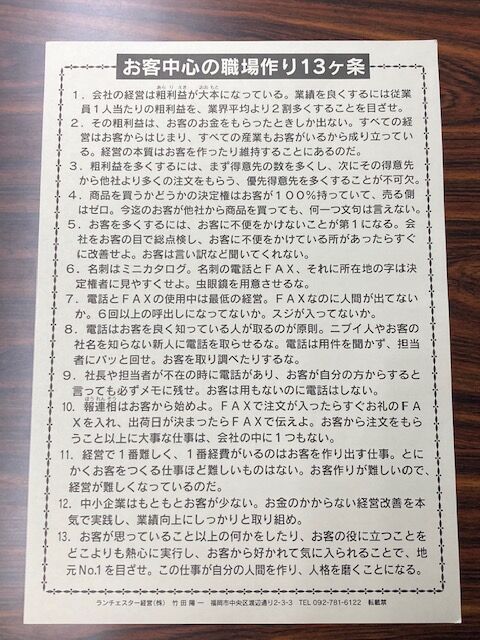 お客中心の職場作り13ヶ条
1．会社の経営は粗利益が大本になっている。業績を良くするには従業
員1人当たりの粗利益を、業界平均より2割多くすることを目ざせ。
2．その粗利益は、お客のお金をもらったときしか出ない。すべての経
営はお客からはじまり、すべての産業もお客がいるから成り立ってい
る。経営の本質はお客を作ったり維持することにあるのだ。
3．粗利益を多くするには、まず得意先の数を多くし、次にその得意先
から他社より多くの注文をもらう、優先得意先を多くすることが不可欠。
4．商品を買うかどうかの決定権はお客が100%持っていて、売る側
はゼロ。今迄のお客が他社から商品を買っても、何一つ文句は言えない。
5．お客を多くするには、お客に不便をかけないことが第1になる。会
社をお客の目で総点検し、お客に不便をかけている所があったらすぐ
に改善せよ。お客は言い訳など聞いてくれない。
6．名刺はミニカタログ。名刺の電話とFAX、それに所在地の字は決
定権者に見やすくせよ。虫眼鏡を用意させるな。
7．電話とFAXの使用中は最低の経営。FAXなのに人間が出てない
か。6回以上の呼出しになってないか。スジが入ってないか。
8．電話はお客を良く知っている人が取るのが原則。ニブイ人やお客の
社名を知らない新人に電話を取らせるな。電話は用件を聞かず、担当
者にパッと回せ。お客を取り調べたりするな。
9．社長や担当者が不在の時に電話があり、お客が自分の方からすると
言っても必ずメモに残せ。お客は用もないのに電話はしない。
10．報連相はお客から始めよ。FAXで注文が入ったらすぐお礼のFA
Xを入れ、出荷日が決まったらFAXで伝えよ。お客から注文をもら
うこと以上に大事な仕事は、会社の中に1つもない。
11．経営で1番難しく、1番経費がいるのはお客を作り出す仕事。とに
かくお客をつくる仕事ほど難しいものはない。お客作りが難しいので、
経営が難しくなっているのだ。
12．中小企業はもともとお客が少ない。お金のかからない経営改善を本
気で実践し、業績向上にしっかりと取り組め。
13．お客が思っていること以上の何かをしたり、お客の役に立つことを
どこよりも熱心に実行し、お客から好かれて気に入られることで、地
元No.1を目ざせ。この仕事が自分の人間を作り、人格を磨くことになる。
ランチェスター経営(株)　竹田陽一　福岡市中央区渡辺通り2-3-3　TEL 092-781-6122　転載禁